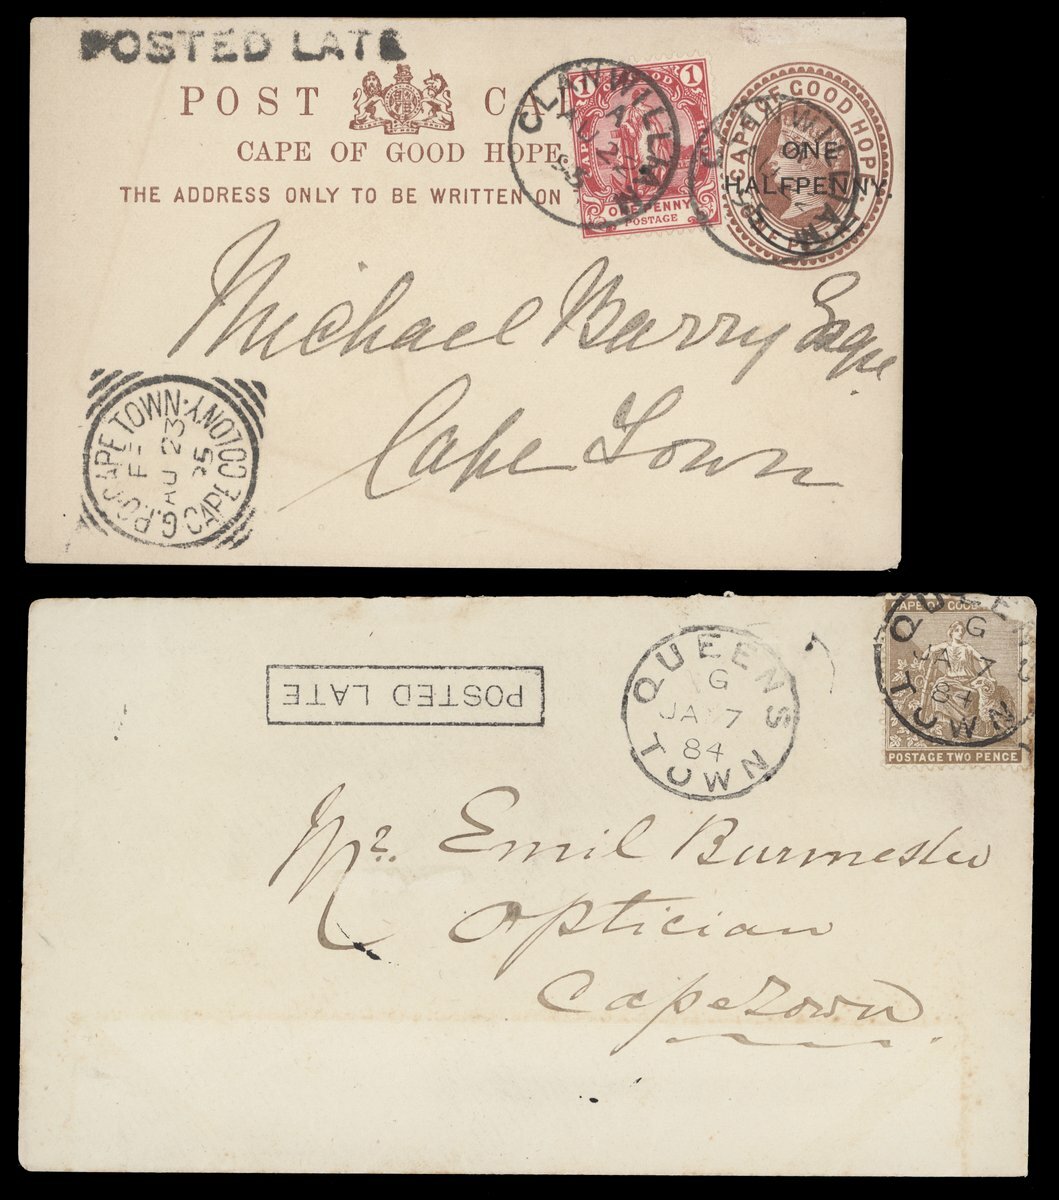 POSTED LATE
POST CA
CAPE OF GOOD HOPE
THE ADDRESS ONLY TO BE WRITTEN ON
CLANWILLIAM
A
AU 22
95
1
ONE PENNY
POSTAGE
CAPE OF GOOD HOPE
ONE
HALFPENNY.
ONE PENNY
CLANWILLIAM
Michael Barry Esqre
Cape Town
G.P.O. CAPE TOWN. CAPE COLONY.
AU 23
95
POSTED LATE
QUEENS TOWN
G
JA 27
84
CAPE OF GOOD
QUEENS TOWN
G
JA 27
84
POSTAGE TWO PENCE
Mr. Emil Burmester
Optician
Capetown